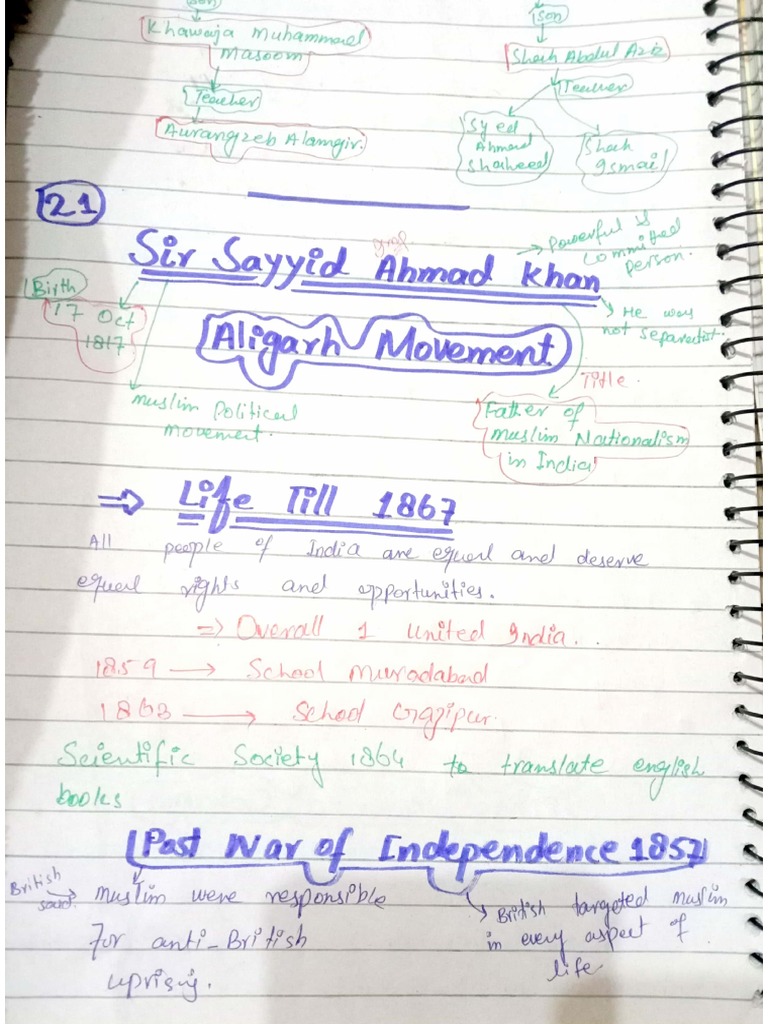 son
Khawaja Muhammad
Masoom
Teacher
Aurangzeb Alamgir.
son
Shah Abdul Aziz
Teacher
Syed
Ahmad
Shaheed
Shah
Ismail
21
Sir Sayyid Ahmad Khan
→ Powerful &
committed
person.
Birth
17 Oct
1817
He was
not separatist.
Aligarh Movement
Title.
Muslim Political
Movement.
Father of
Muslim Nationalism
in India
⇒ Life Till 1867
All people of India are equal and deserve
equal rights and opportunities.
⇒ Overall 1 United India..
1859 → School Muradabad
1863 → School Gazipur.
Scientific Society 1864 to translate english
books
Post War of Independence 1857
British
said.
Muslim were responsible
For anti-British
uprising.
British targeted muslim
in every aspect of
life